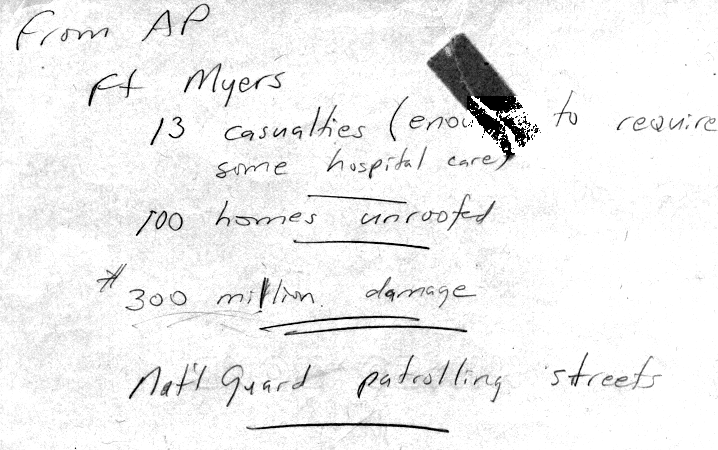 From AP
Ft Myers
13 casualties (enou to require
some hospital care)
100 homes unroofed
$300 million damage
Nat'l Guard patrolling streets